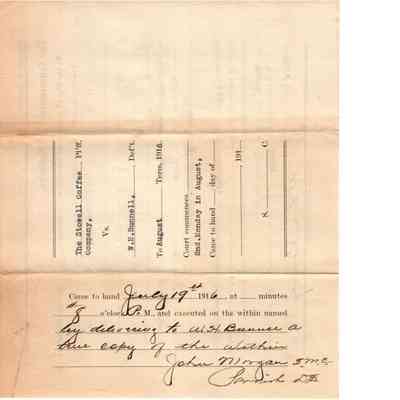 The Stowell Coffee Company, Pl'ff.
Vs.
W.H.Bunnell, Def't.
To August Term, 1916.
Court commences
2nd.Monday in August,
Came to hand day of
, 191
S. C.
Came to hand July 19th 1916 at minutes
8 o'clock P.M., and executed on the within named
by delivering to W.H. Bunnell a
true copy of the within
John Morgan